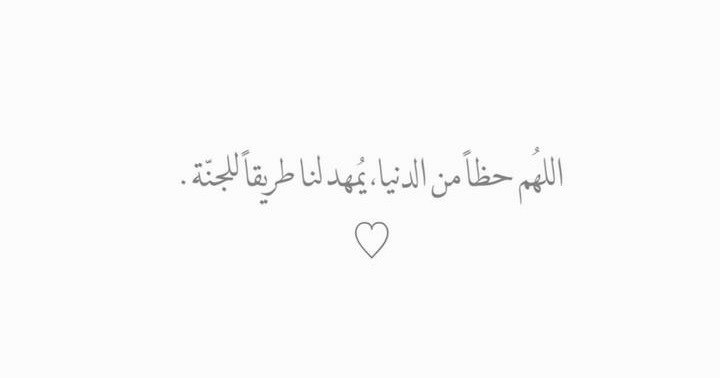 اللهُم حظاً من الدنيا، يُمهد لنا طريقاً للجنّة .
♡